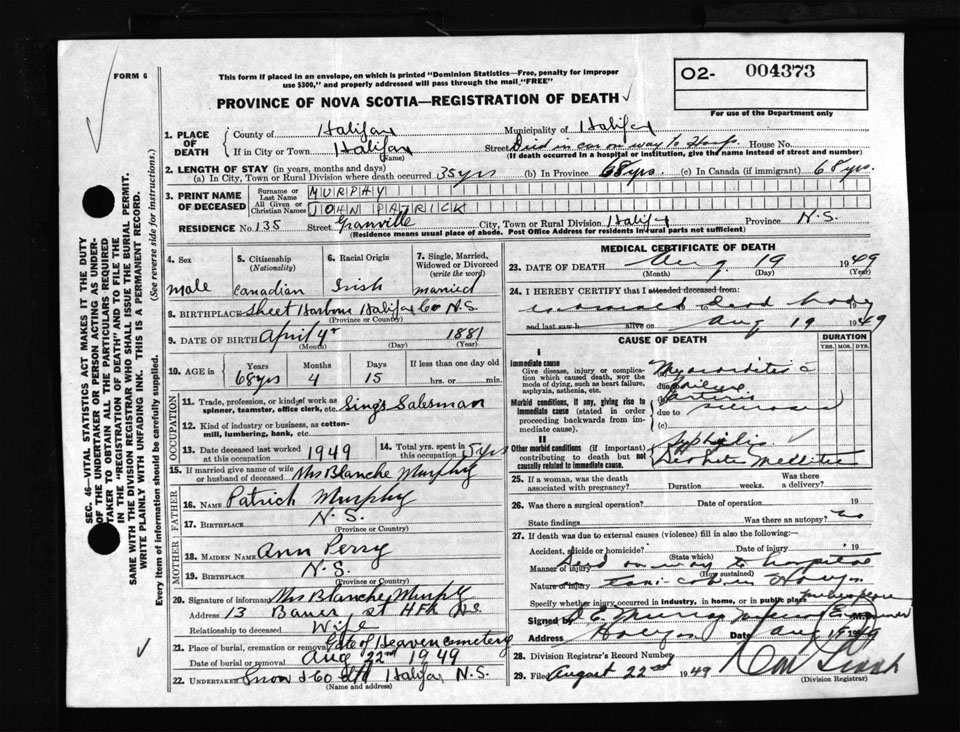 FORM 6
This form if placed in an envelope, on which is printed "Dominion Statistics—Free, penalty for improper
use $300," and properly addressed will pass through the mail "FREE"
O2- 004373
PROVINCE OF NOVA SCOTIA—REGISTRATION OF DEATH
For use of the Department only
SEC. 46—VITAL STATISTICS ACT MAKES IT THE DUTY
OF THE UNDERTAKER OR PERSON ACTING AS UNDER-
TAKER TO OBTAIN ALL THE PARTICULARS REQUIRED
IN THE "REGISTRATION OF DEATH" AND TO FILE THE
SAME WITH THE DIVISION REGISTRAR WHO SHALL ISSUE THE BURIAL PERMIT.
WRITE PLAINLY WITH UNFADING INK. THIS IS A PERMANENT RECORD.
Every item of information should be carefully supplied. (See reverse side for instructions.)
1. PLACE OF DEATH
County of Halifax Municipality of Halifax
If in City or Town Halifax (Name) Street Died in car on way to Hosp. House No.
(If death occurred in a hospital or institution, give the name instead of street and number)
2. LENGTH OF STAY (in years, months and days)
(a) In City, Town or Rural Division where death occurred 35 yrs (b) In Province 68 yrs. (c) In Canada (if immigrant) 68 yrs.
3. PRINT NAME OF DECEASED
Surname or Last Name MURPHY
All Given or Christian Names JOHN PATRICK
RESIDENCE No. 135 Street Granville City, Town or Rural Division Halifax Province N.S.
(Residence means usual place of abode. Post Office Address for residents in rural parts not sufficient)
4. Sex
male
5. Citizenship (Nationality)
Canadian
6. Racial Origin
Irish
7. Single, Married, Widowed or Divorced (write the word)
married
8. BIRTHPLACE Sheet Harbour Halifax Co N.S.
(Province or Country)
9. DATE OF BIRTH April 4 1881
(Month) (Day) (Year)
10. AGE in Years 68 yrs Months 4 Days 15 If less than one day old hrs. or min.
OCCUPATION
11. Trade, profession, or kind of work as spinner, teamster, office clerk, etc. Salesman
12. Kind of industry or business, as cotton-mill, lumbering, bank, etc.
13. Date deceased last worked at this occupation 1949
14. Total yrs. spent in this occupation
15. If married give name of wife or husband of deceased Mrs Blanche Murphy
FATHER
16. Name Patrick Murphy
17. Birthplace N.S.
(Province or Country)
MOTHER
18. Maiden Name Ann Perry
19. Birthplace N.S.
(Province or Country)
20. Signature of informant Mrs Blanche Murphy
Address 13 St Hfx N.S.
Relationship to deceased Wife
21. Place of burial, cremation or removal Gate of Heaven Cemetery
Date of burial or removal Aug 22nd 1949
22. UNDERTAKER Snow & Co Ltd Halifax N.S.
(Name and address)
MEDICAL CERTIFICATE OF DEATH
23. DATE OF DEATH Aug 19 1949
(Month) (Day) (Year)
24. I HEREBY CERTIFY that I attended deceased from:
examined dead body
and last saw h alive on Aug 19 1949
CAUSE OF DEATH
DURATION
YRS. MOS. DYS.
I
Immediate cause
Give disease, injury or complication which caused death, not the mode of dying, such as heart failure, asphyxia, asthenia, etc.
(a) Myocarditis c failure
due to
Morbid conditions, if any, giving rise to immediate cause (stated in order proceeding backwards from immediate cause).
(b) Arterio
due to sclerosis
(c)
II
Other morbid conditions (if important) contributing to death but not causally related to immediate cause.
Syphilis
Diabetes Mellitus
25. If a woman, was the death associated with pregnancy? Duration weeks. Was there a delivery?
26. Was there a surgical operation? Date of operation 19
State findings Was there an autopsy? no
27. If death was due to external causes (violence) fill in also the following:
Accident, suicide or homicide? (State which) Date of injury 19
Manner of injury Died on way to hospital
(How sustained)
Nature of injury taxi
Specify whether injury occurred in industry, in home, or in public place
Signed by Examiner
Address Date Aug 19 1949
28. Division Registrar's Record Number
29. Filed August 22nd 1949
(Division Registrar)